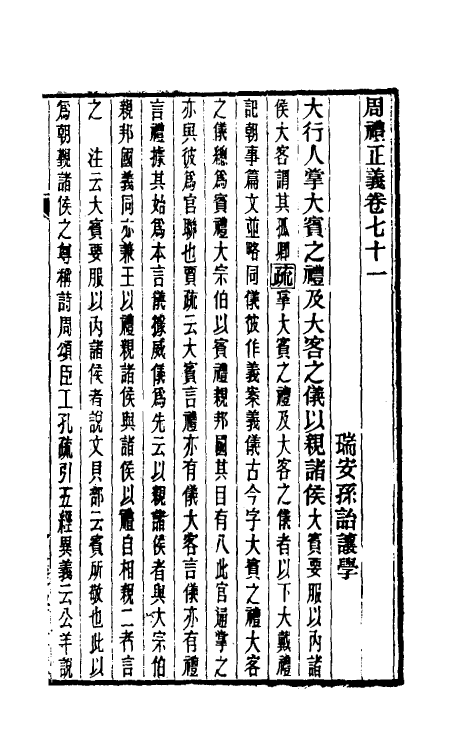 周禮正義卷七十一
瑞安孫詒讓學
大行人掌大賓之禮及大客之儀以親諸侯大賓要服以內諸
侯大客謂其孤卿疏掌大賓之禮及大客之儀者以下大戴禮
記朝事篇文並略同儀彼作義案義儀古今字大賓之禮大客
之儀總爲賓禮大宗伯以賓禮親邦國其目有八此官通掌之
亦與彼爲官聯也賈疏云大賓言禮亦有儀大客言儀亦有禮
言禮據其始爲本言儀據威儀爲先云以親諸侯者與大宗伯
親邦國義同亦兼王以禮親諸侯與諸侯以禮自相親二者言
之　注云大賓要服以內諸侯者說文貝部云賓所敬也此以
爲朝覲諸侯之尊稱詩周頌臣工孔疏引五經異義云公羊說